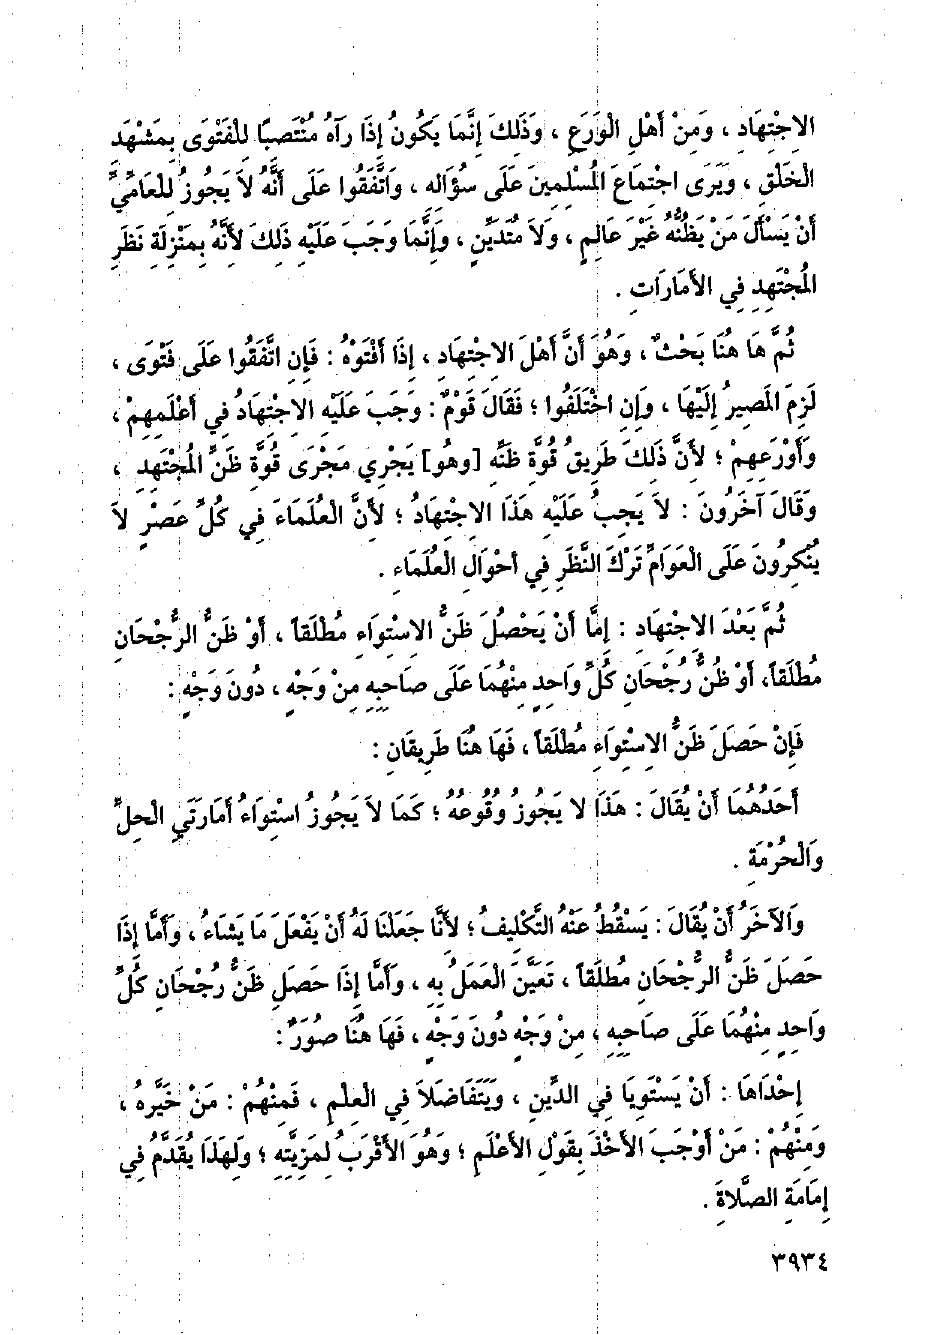 الاِجْتِهَادِ ، وَمِنْ أَهْلِ الْوَرَعِ ، وَذَلِكَ إِنَّمَا يَكُونُ إِذَا رَآهُ مُنْتَصِبًا لِلْفَتْوَى بِمَشْهَدِ
الْخَلْقِ ، وَيَرَى اجْتِمَاعَ الْمُسْلِمِينَ عَلَى سُؤَالِهِ ، وَاتَّفَقُوا عَلَى أَنَّهُ لاَ يَجُوزُ لِلْعَامِّيِّ
أَنْ يَسْأَلَ مَنْ يَظُنُّهُ غَيْرَ عَالِمٍ ، وَلاَ مُتَدَيِّنٍ ، وَإِنَّمَا وَجَبَ عَلَيْهِ ذَلِكَ لأَنَّهُ بِمَنْزِلَةِ نَظَرِ
الْمُجْتَهِدِ فِي الأَمَارَاتِ .
ثُمَّ هَا هُنَا بَحْثٌ ، وَهُوَ أَنَّ أَهْلَ الاِجْتِهَادِ ، إِذَا أَفْتَوْهُ : فَإِنِ اتَّفَقُوا عَلَى فَتْوَى ،
لَزِمَ الْمَصِيرُ إِلَيْهَا ، وَإِنِ اخْتَلَفُوا ؛ فَقَالَ قَوْمٌ : وَجَبَ عَلَيْهِ الاِجْتِهَادُ فِي أَعْلَمِهِمْ ،
وَأَوْرَعِهِمْ ؛ لأَنَّ ذَلِكَ طَرِيقُ قُوَّةِ ظَنِّهِ [وهو] يَجْرِي مَجْرَى قُوَّةِ ظَنِّ الْمُجْتَهِدِ ،
وَقَالَ آخَرُونَ : لاَ يَجِبُ عَلَيْهِ هَذَا الاِجْتِهَادُ ؛ لأَنَّ الْعُلَمَاءَ فِي كُلِّ عَصْرٍ لاَ
يُنْكِرُونَ عَلَى الْعَوَامِّ تَرْكَ النَّظَرِ فِي أَحْوَالِ الْعُلَمَاءِ .
ثُمَّ بَعْدَ الاِجْتِهَادِ : إِمَّا أَنْ يَحْصُلَ ظَنُّ الاِسْتِوَاءِ مُطْلَقاً ، أَوْ ظَنُّ الرُّجْحَانِ
مُطْلَقاً، أَوْ ظَنُّ رُجْحَانِ كُلِّ وَاحِدٍ مِنْهُمَا عَلَى صَاحِبِهِ مِنْ وَجْهٍ ، دُونَ وَجْهٍ :
فَإِنْ حَصَلَ ظَنُّ الاِسْتِوَاءِ مُطْلَقاً ، فَهَا هُنَا طَرِيقَانِ :
أَحَدُهُمَا أَنْ يُقَالَ : هَذَا لا يَجُوزُ وُقُوعُهُ ؛ كَمَا لاَ يَجُوزُ اسْتِوَاءُ أَمَارَتَيِ الْحِلِّ
وَالْحُرْمَةِ .
وَالآخَرُ أَنْ يُقَالَ : يَسْقُطُ عَنْهُ التَّكْلِيفُ ؛ لأَنَّا جَعَلْنَا لَهُ أَنْ يَفْعَلَ مَا يَشَاءُ ، وَأَمَّا إِذَا
حَصَلَ ظَنُّ الرُّجْحَانِ مُطْلَقاً ، تَعَيَّنَ الْعَمَلُ بِهِ ، وَأَمَّا إِذَا حَصَلَ ظَنُّ رُجْحَانِ كُلِّ
وَاحِدٍ مِنْهُمَا عَلَى صَاحِبِهِ ، مِنْ وَجْهٍ دُونَ وَجْهٍ ، فَهَا هُنَا صُوَرٌ :
إِحْدَاهَا : أَنْ يَسْتَوِيَا فِي الدِّينِ ، وَيَتَفَاضَلاَ فِي الْعِلْمِ ، فَمِنْهُمْ : مَنْ خَيَّرَهُ ،
وَمِنْهُمْ : مَنْ أَوْجَبَ الأَخْذَ بِقَوْلِ الأَعْلَمِ ؛ وَهُوَ الأَقْرَبُ لِمَزِيَّتِهِ ؛ وَلِهَذَا يُقَدَّمُ فِي
إِمَامَةِ الصَّلاَةِ .
٣٩٣٤